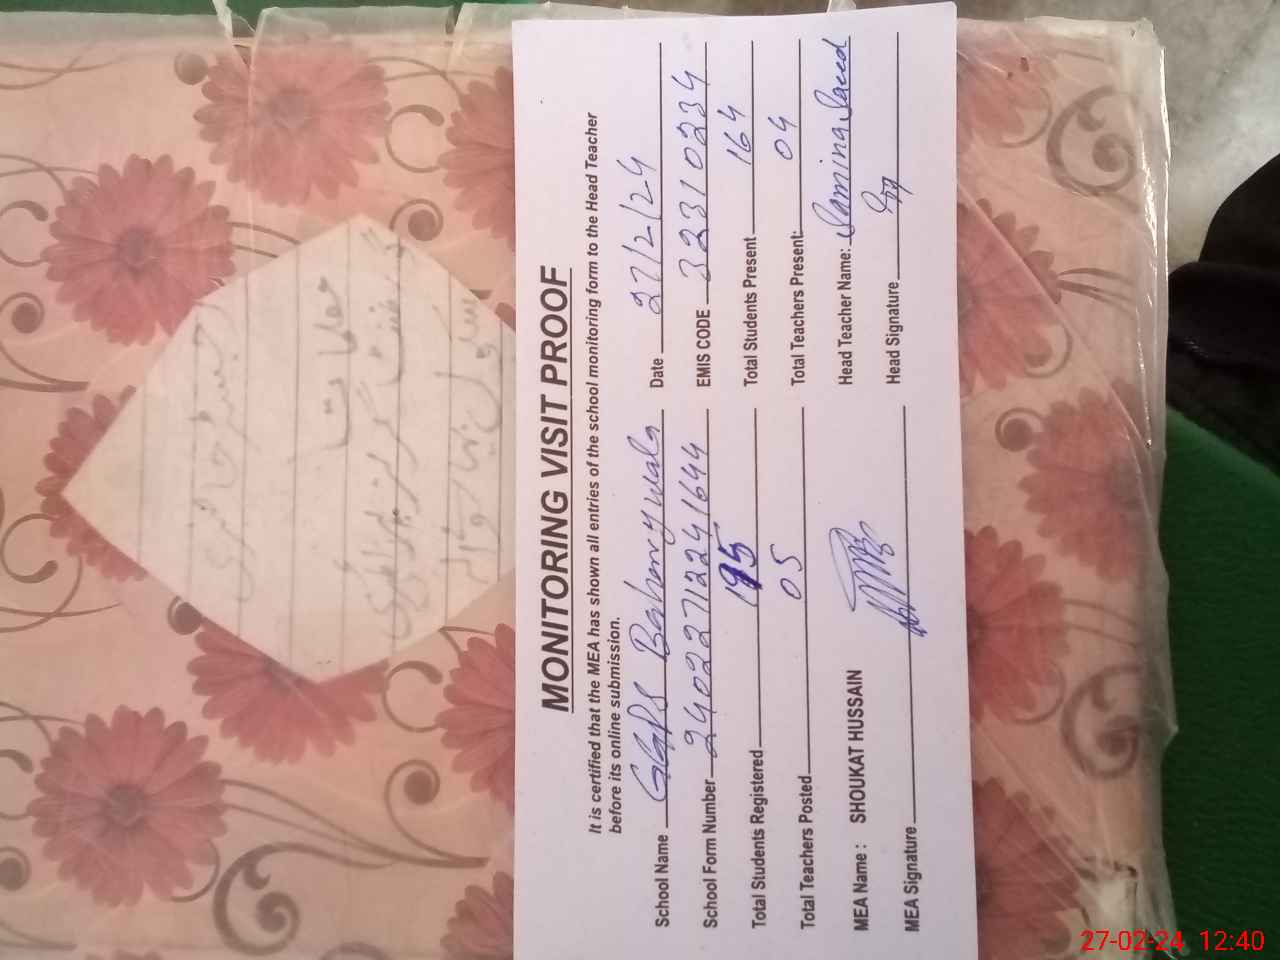 MONITORING VISIT PROOF
It is certified that the MEA has shown all entries of the school monitoring form to the Head Teacher
before its online submission.
School Name GGPS Date 27/2/24
School Form Number 24022712241644 EMIS CODE 33310234
Total Students Registered 195 Total Students Present 164
Total Teachers Posted 05 Total Teachers Present: 04
MEA Name : SHOUKAT HUSSAIN Head Teacher Name: Samina Saeed
MEA Signature Head Signature
رجسٹر حاضری
27-02-24 12:40